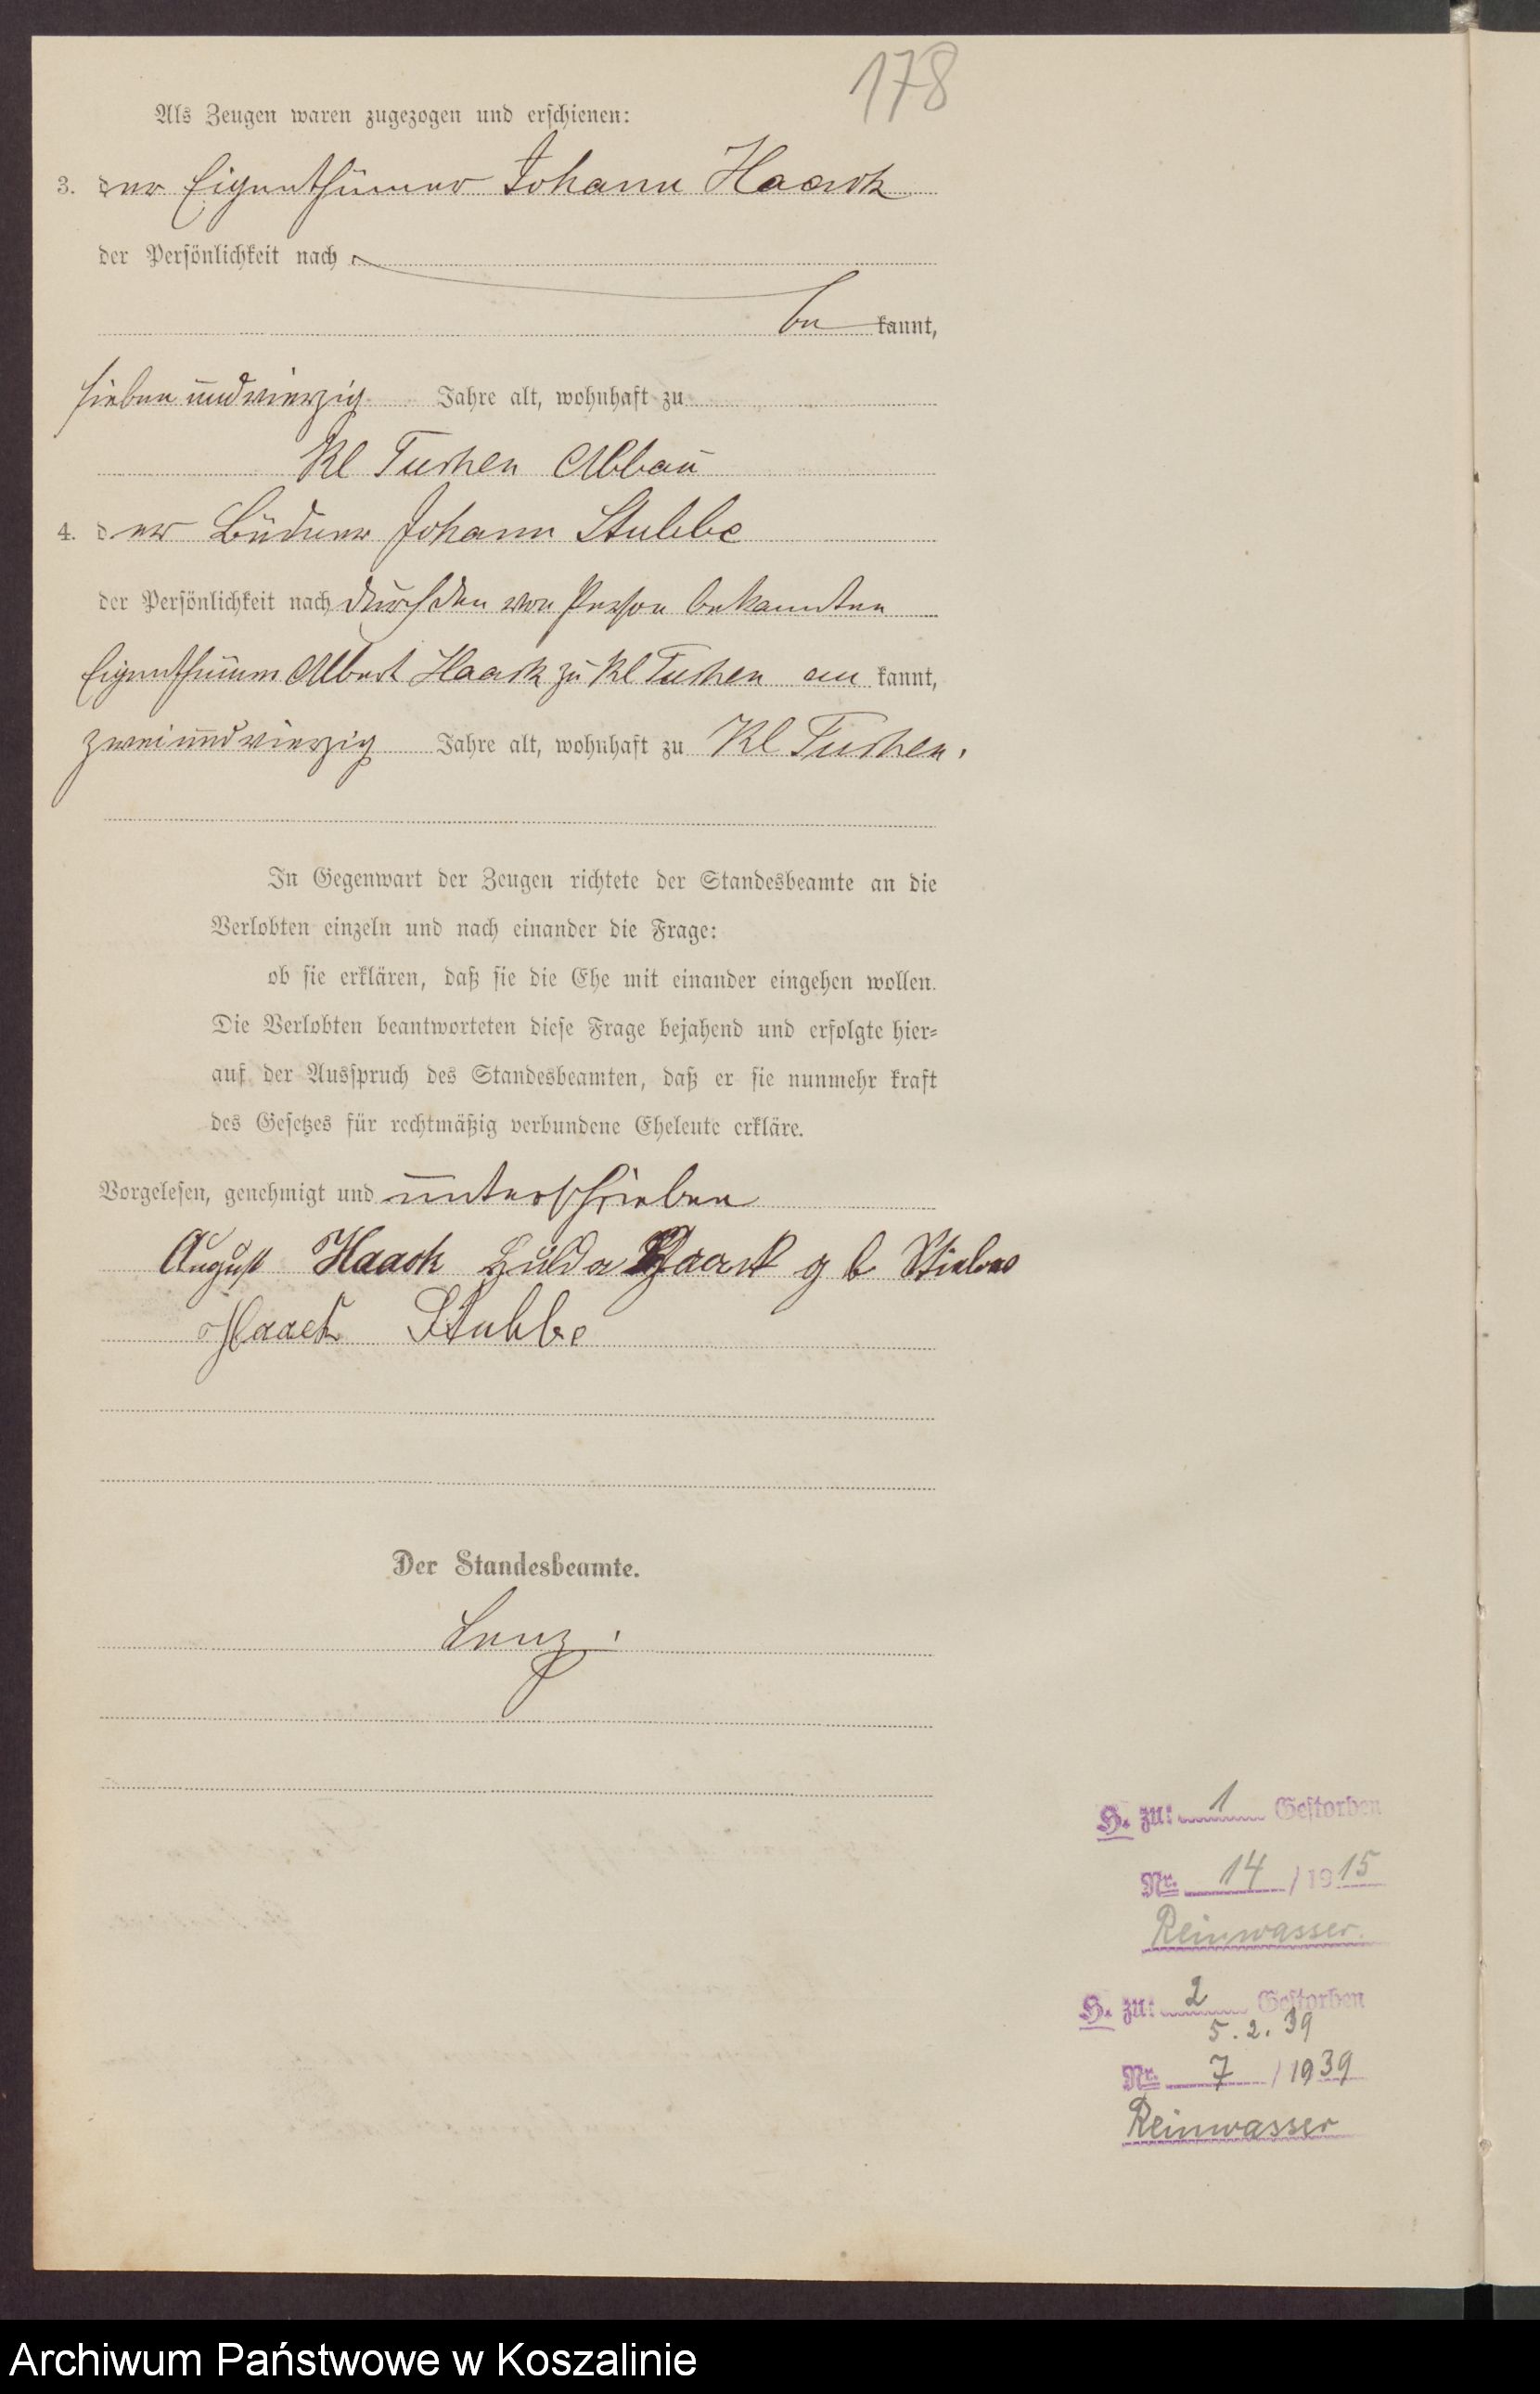 178
Als Zeugen waren zugezogen und erschienen:
3. der Eigenthümer Johann Haack
der Persönlichkeit nach
be kannt,
sieben und vierzig Jahre alt, wohnhaft zu
Kl Tuchen Abbau
4. der Büdner Johann Stubbe
der Persönlichkeit nach durch den von Person bekannten
Eigenthümer Albert Haack zu Kl Tuchen er kannt,
zwei und vierzig Jahre alt, wohnhaft zu Kl Tuchen.
In Gegenwart der Zeugen richtete der Standesbeamte an die
Verlobten einzeln und nach einander die Frage:
ob sie erklären, daß sie die Ehe mit einander eingehen wollen.
Die Verlobten beantworteten diese Frage bejahend und erfolgte hier-
auf der Ausspruch des Standesbeamten, daß er sie nunmehr kraft
des Gesetzes für rechtmäßig verbundene Eheleute erkläre.
Vorgelesen, genehmigt und unterschrieben
August Haack Hulda Haack g b
Haack Stubbe
Der Standesbeamte.
Lenz.
H. zu: 1 Gestorben
Nr. 14 / 1915
Reinwasser.
H. zu: 2 Gestorben
5. 2. 39
Nr. 7 / 1939
Reinwasser
Archiwum Państwowe w Koszalinie